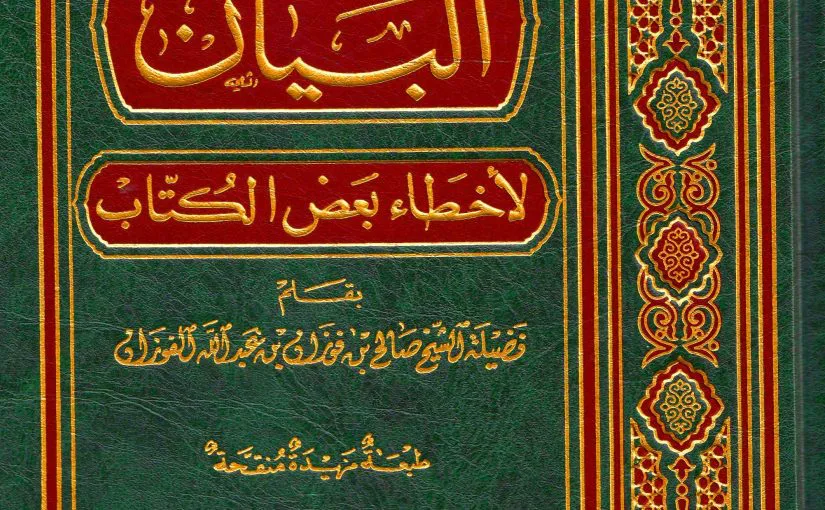 البَيَان
لأخطَاء بَعَض الكُتّاب
بقَلَم
فَضيلَة الشّيخ صَالح بنْ فوزَان بن عَبد اللّه الفوزَان
طَبعَة مَزيدَة مُنقّحَة